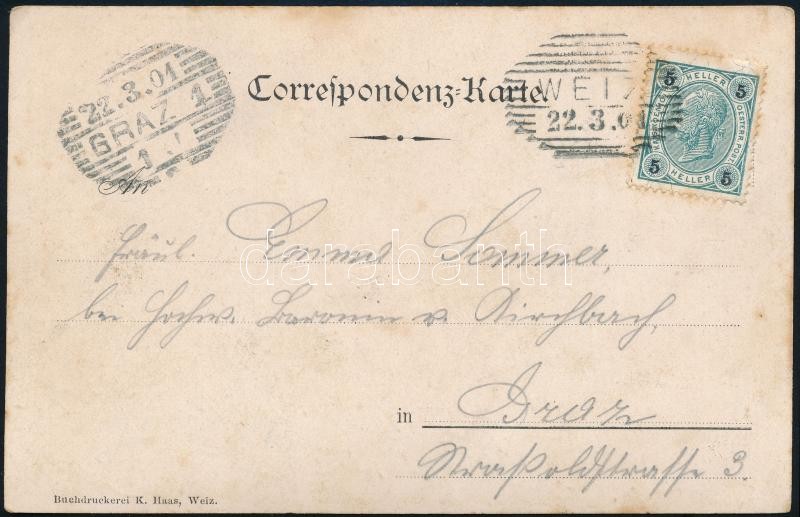 22.3.01
GRAZ 1
1
Correspondenz-Karte.
WEIZ
22.3.01
5 HELLER 5
OESTERR. POST.
5 HELLER 5
An
Fräul. Emma Sommer,
bei Hochw. Baronin v. Kirchbach,
in Graz
Straßoldstrasse 3.
Buchdruckerei K. Haas, Weiz.
darabanth